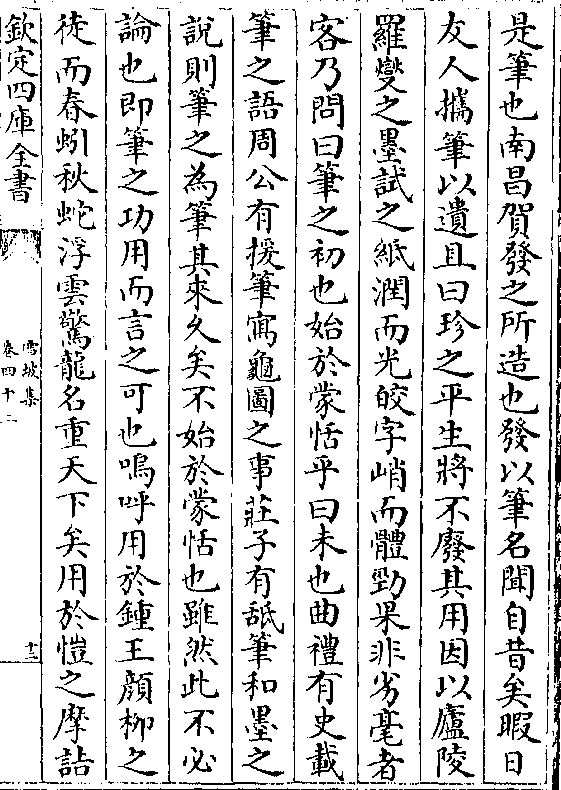 是筆也南昌賀發之所造也發以筆名聞自昔矣暇日
友人攜筆以遺且曰珍之平生將不廢其用因以廬陵
羅燮之墨試之紙潤而光皎字峭而體勁果非劣毫者
客乃問曰筆之初也始於蒙恬乎曰未也曲禮有史載
筆之語周公有援筆寫龜圖之事莊子有舐筆和墨之
說則筆之為筆其來久矣不始於蒙恬也雖然此不必
論也即筆之功用而言之可也嗚呼用於鍾王顔柳之
徒而春蚓秋蛇浮雲驚龍名重天下矣用於愷之摩詰
欽定四庫全書
雪坡集
卷四十二
十三